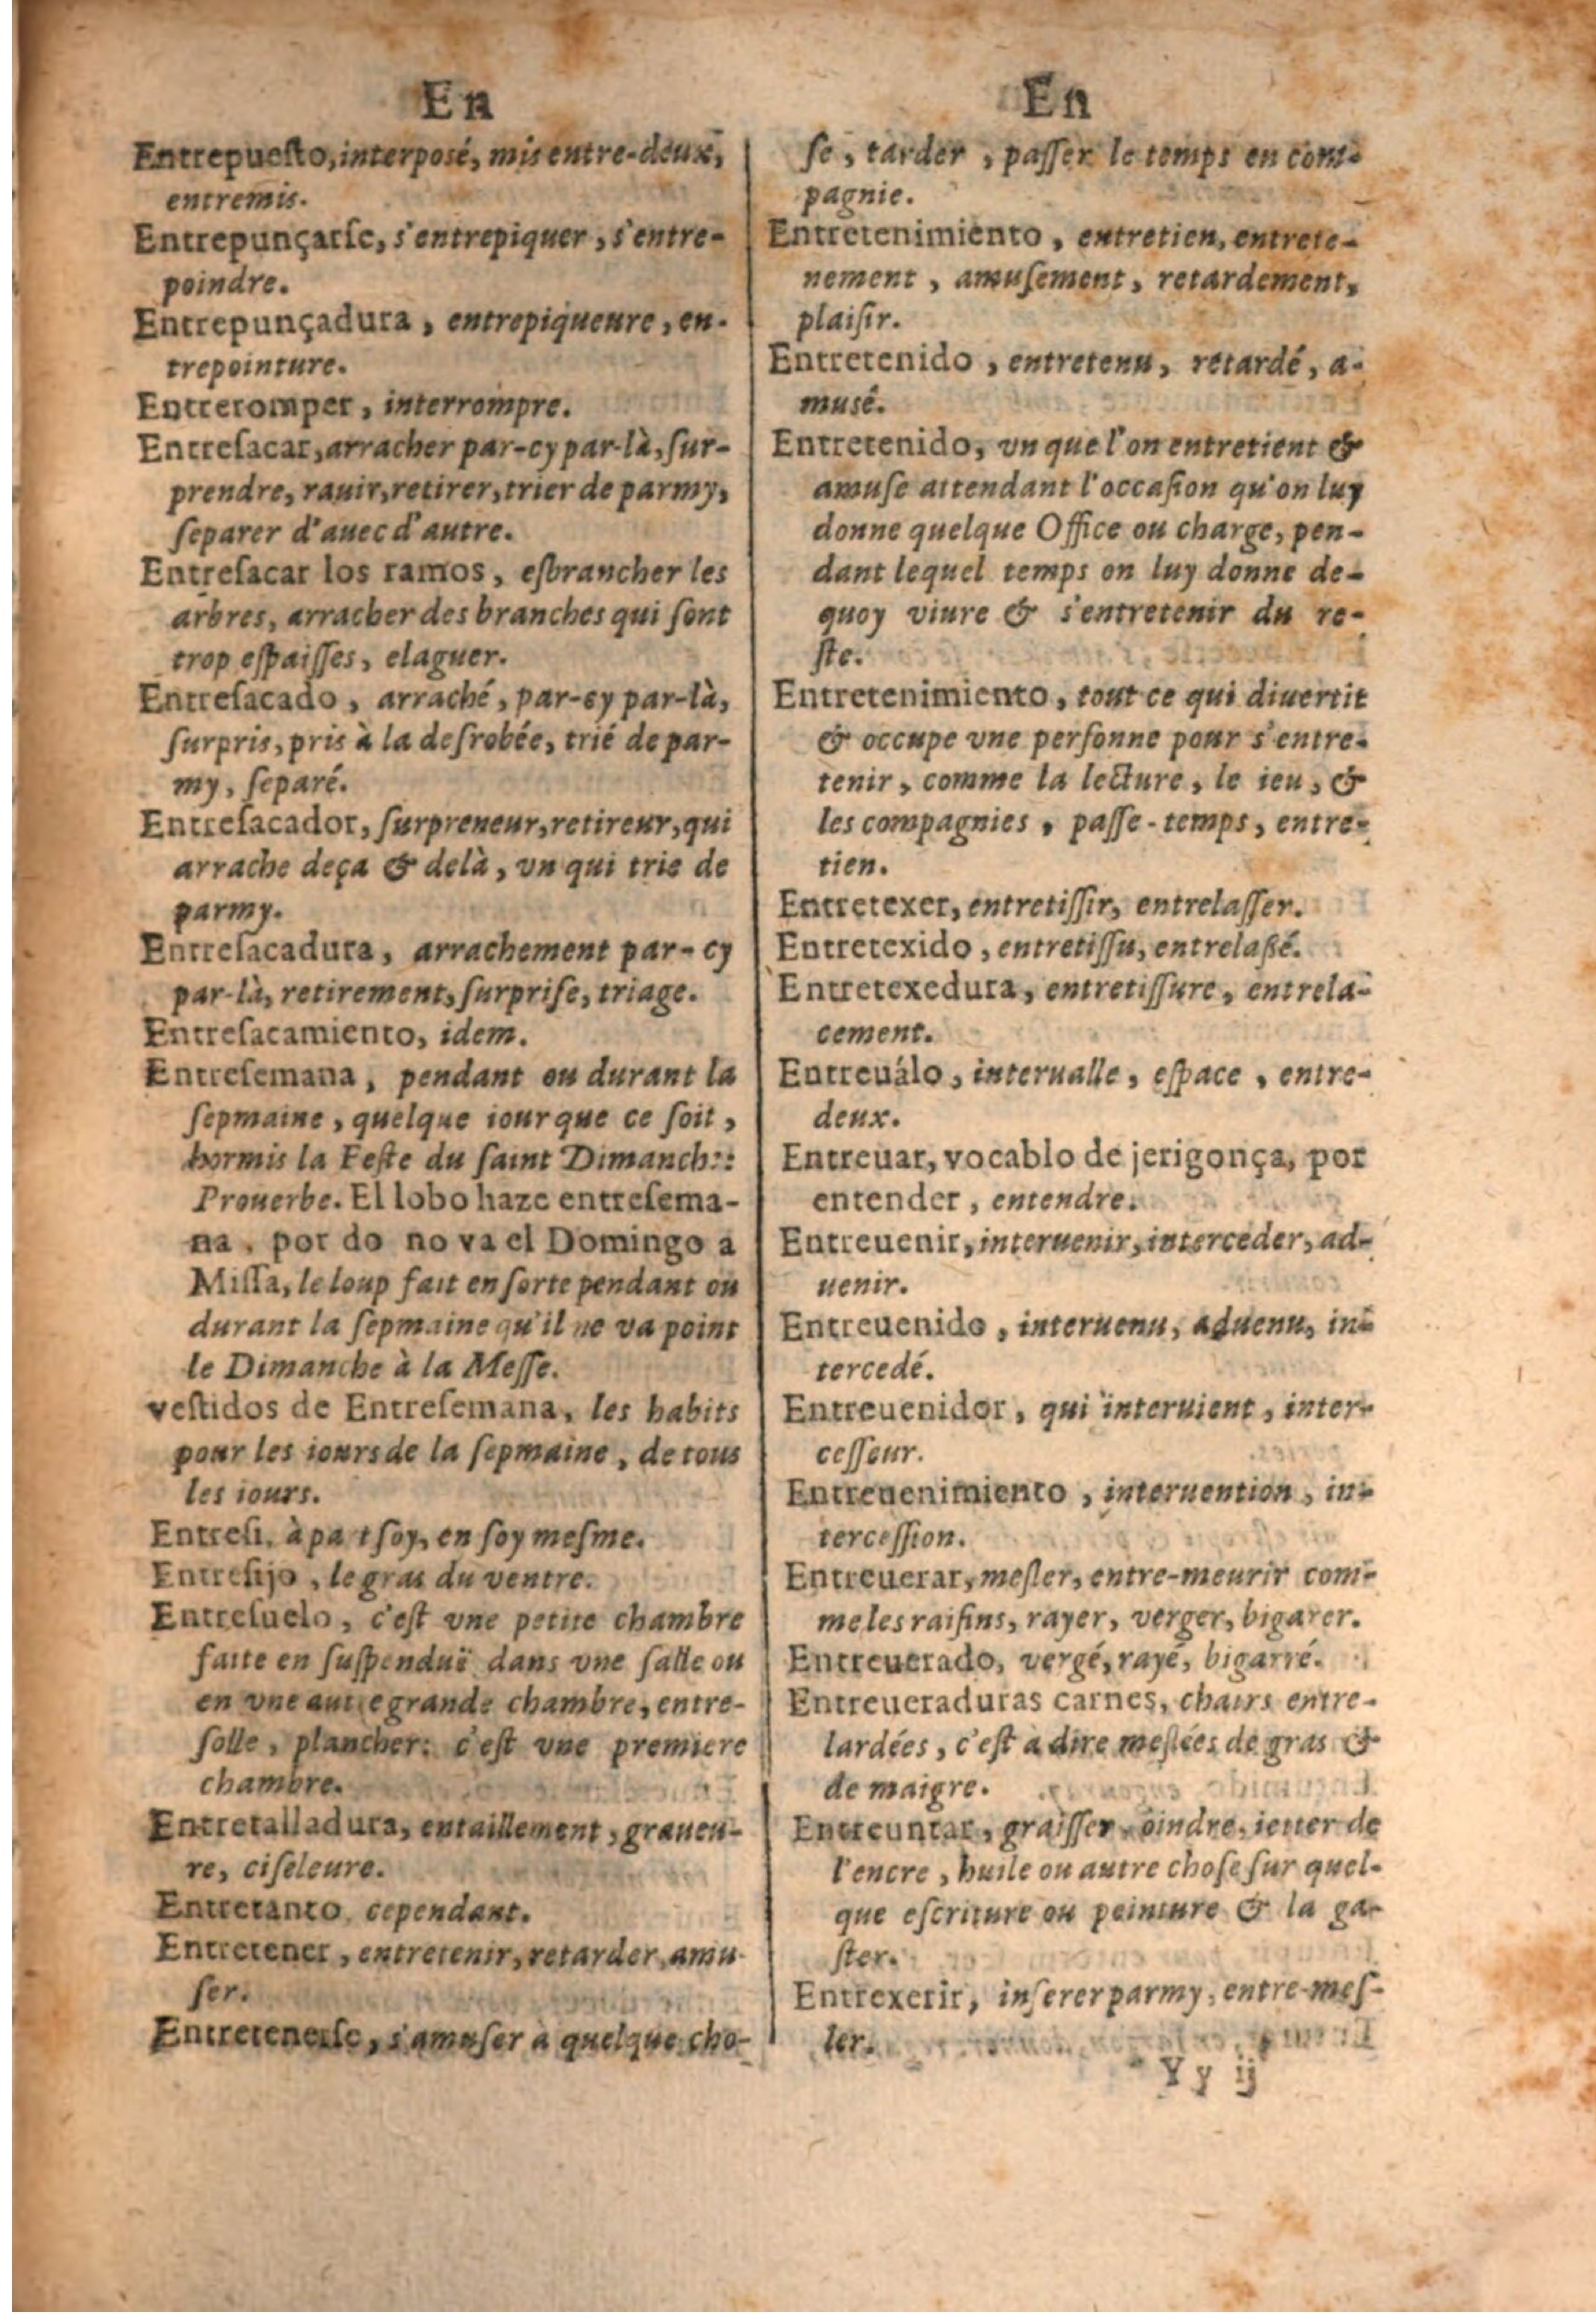 En
Entrepuesto, interposé, mis entre-deux,
entremis.
Entrepunçarse, s'entrepiquer, s'entre-
poindre.
Entrepunçadura, entrepiqueure, en-
trepointure.
Entreromper, interrompre.
Entresacar, arracher par-cy par-là, sur-
prendre, rauir, retirer, trier de parmy,
separer d'auec d'autre.
Entresacar los ramos, esbrancher les
arbres, arracher des branches qui sont
trop espaisses, elaguer.
Entresacado, arraché, par-cy par-là,
surpris, pris à la desrobée, trié de par-
my, separé.
Entresacador, surpreneur, retireur, qui
arrache deça & delà, vn qui trie de
parmy.
Entresacadura, arrachement par-cy
par-là, retirement, surprise, triage.
Entresacamiento, idem.
Entresemana, pendant ou durant la
sepmaine, quelque iour que ce soit,
hormis la Feste du saint Dimanche:
Prouerbe. El lobo haze entresema-
na, por do no va el Domingo a
Missa, le loup fait en sorte pendant ou
durant la sepmaine qu'il ne va point
le Dimanche à la Messe.
vestidos de Entresemana, les habits
pour les iours de la sepmaine, de tous
les iours.
Entresi, à part soy, en soy mesme.
Entresijo, le gras du ventre.
Entresuelo, c'est vne petite chambre
faite en suspenduë dans vne salle ou
en vne autre grande chambre, entre-
solle, plancher: c'est vne premiere
chambre.
Entretalladura, entaillement, graueu-
re, ciseleure.
Entretanto, cependant.
Entretener, entretenir, retarder, amu-
ser.
Entretenerse, s'amuser à quelque cho-
En
se, tarder, passer le temps en com-
pagnie.
Entretenimiento, entretien, entrete-
nement, amusement, retardement,
plaisir.
Entretenido, entretenu, retardé, a-
musé.
Entretenido, vn que l'on entretient &
amuse attendant l'occasion qu'on luy
donne quelque Office ou charge, pen-
dant lequel temps on luy donne de-
quoy viure & s'entretenir du re-
ste.
Entretenimiento, tout ce qui diuertit
& occupe vne personne pour s'entre-
tenir, comme la lecture, le ieu, &
les compagnies, passe-temps, entre-
tien.
Entretexer, entretissir, entrelasser.
Entretexido, entretissu, entrelaßé.
Entretexedura, entretissure, entrela-
cement.
Entreuálo, interualle, espace, entre-
deux.
Entreuar, vocablo de jerigonça, por
entender, entendre.
Entreuenir, interuenir, interceder, ad-
uenir.
Entreuenido, interuenu, aduenu, in-
tercedé.
Entreuenidor, qui interuient, inter-
cesseur.
Entreuenimiento, interuention, in-
tercession.
Entreuerar, mesler, entre-meurir com-
me les raisins, rayer, verger, bigarer.
Entreuerado, vergé, rayé, bigarré.
Entreueraduras carnes, chairs entre-
lardées, c'est a dire meslées de gras &
de maigre.
Entreuntar, graisser, oindre, ietter de
l'encre, huile ou autre chose sur quel-
que escriture ou peinture & la ga-
ster.
Entrexerir, inserer parmy, entre-mes-
ler.
Y y ij